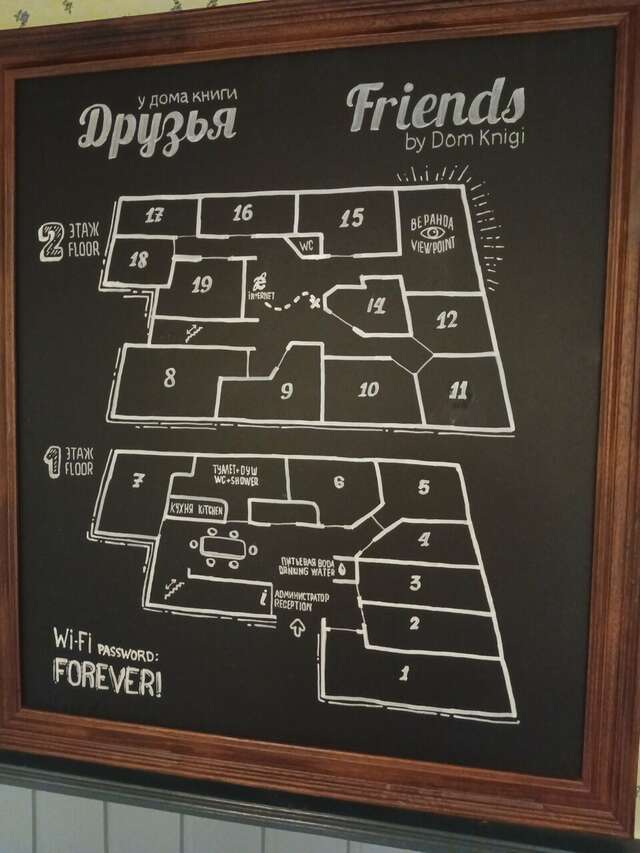 у дома книги
Друзья
Friends
by Dom Knigi
2 ЭТАЖ
FLOOR
17
16
15
ВЕРАНДА
VIEWPOINT
WC
18
19
INTERNET
14
12
8
9
10
11
1 ЭТАЖ
FLOOR
7
ТУАЛЕТ+ДУШ
WC+SHOWER
6
5
КУХНЯ KITCHEN
4
ПИТЬЕВАЯ ВОДА
DRINKING WATER
3
i
АДМИНИСТРАТОР
RECEPTION
2
1
Wi-Fi PASSWORD:
FOREVER!